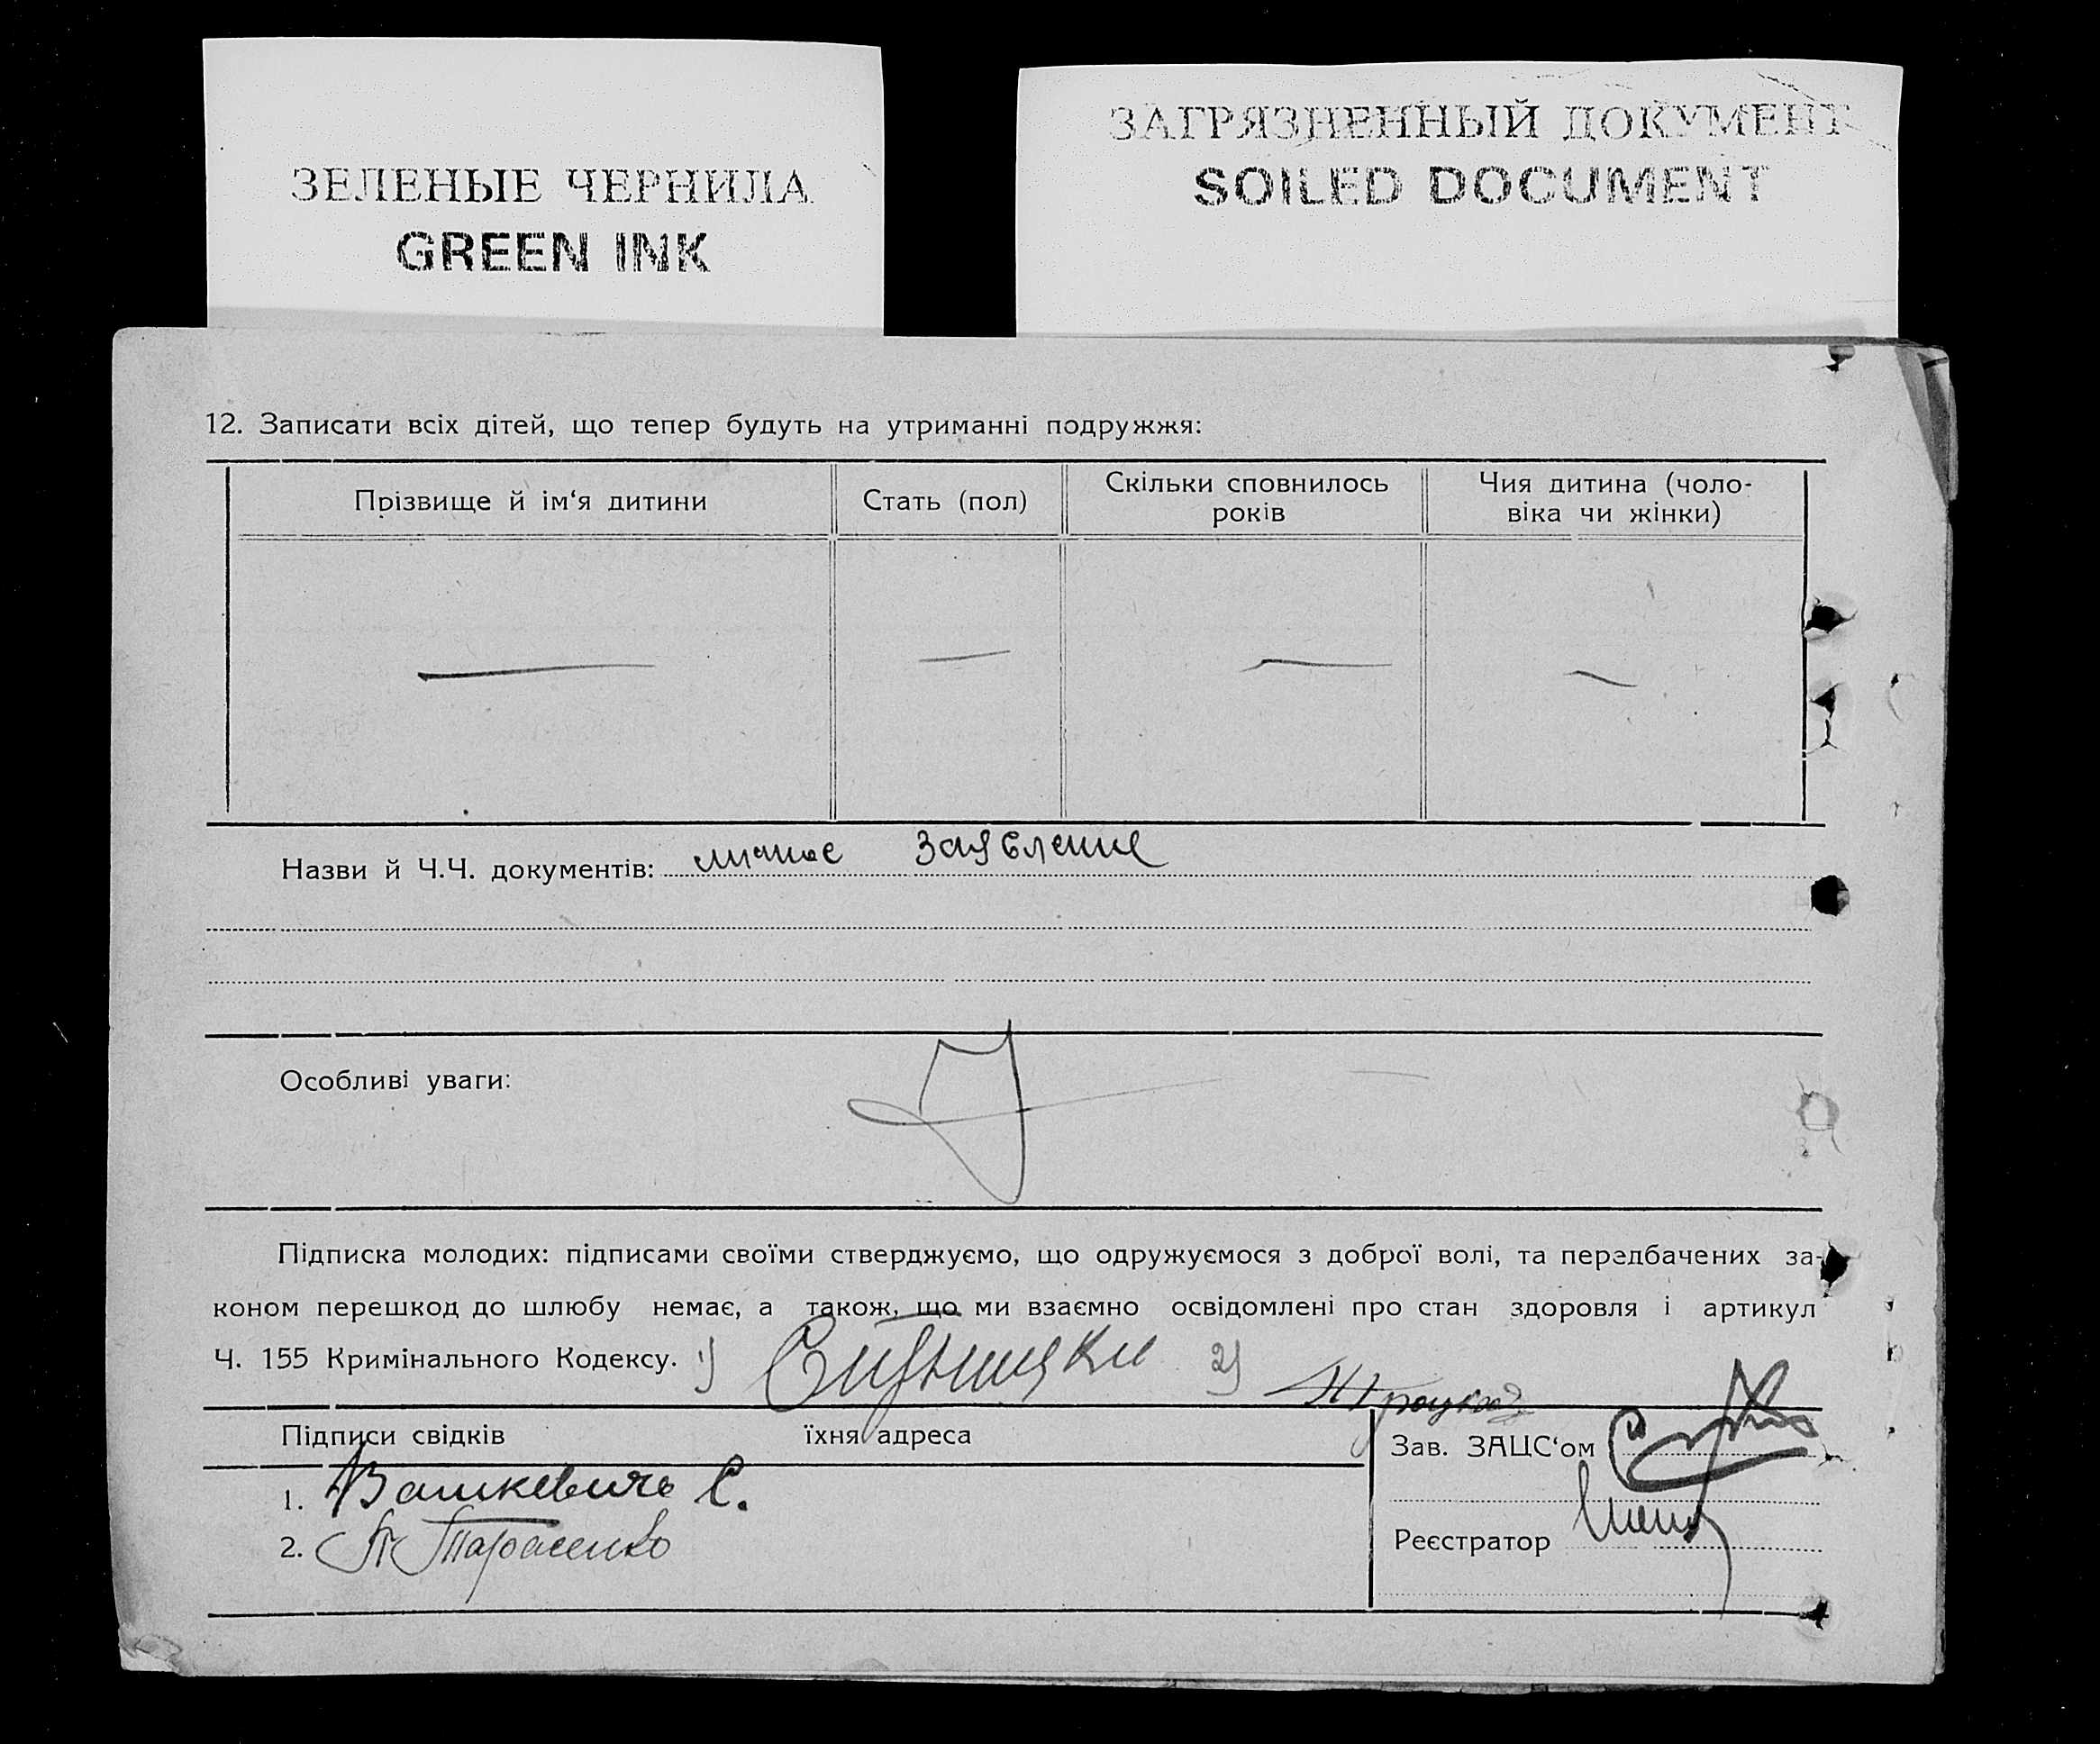 ЗЕЛЕНЫЕ ЧЕРНИЛА
GREEN INK
ЗАГРЯЗНЕННЫЙ ДОКУМЕНТ
SOILED DOCUMENT
12. Записати всіх дітей, що тепер будуть на утриманні подружжя:
Прізвище й ім‘я дитини
Стать (пол)
Скільки сповнилось
років
Чия дитина (чоло-
віка чи жінки)
Назви й Ч.Ч. документів: личное заявление
Особливі уваги:
Підписка молодих: підписами своїми стверджуємо, що одружуємося з доброї волі, та передбачених за-
коном перешкод до шлюбу немає, а також, що ми взаємно освідомлені про стан здоровля і артикул
Ч. 155 Кримінального Кодексу. 1) 2)
Підписи свідків їхня адреса
Зав. ЗАЦС‘ом
1. Вашкевичь С.
2. Тарасенко
Реєстратор